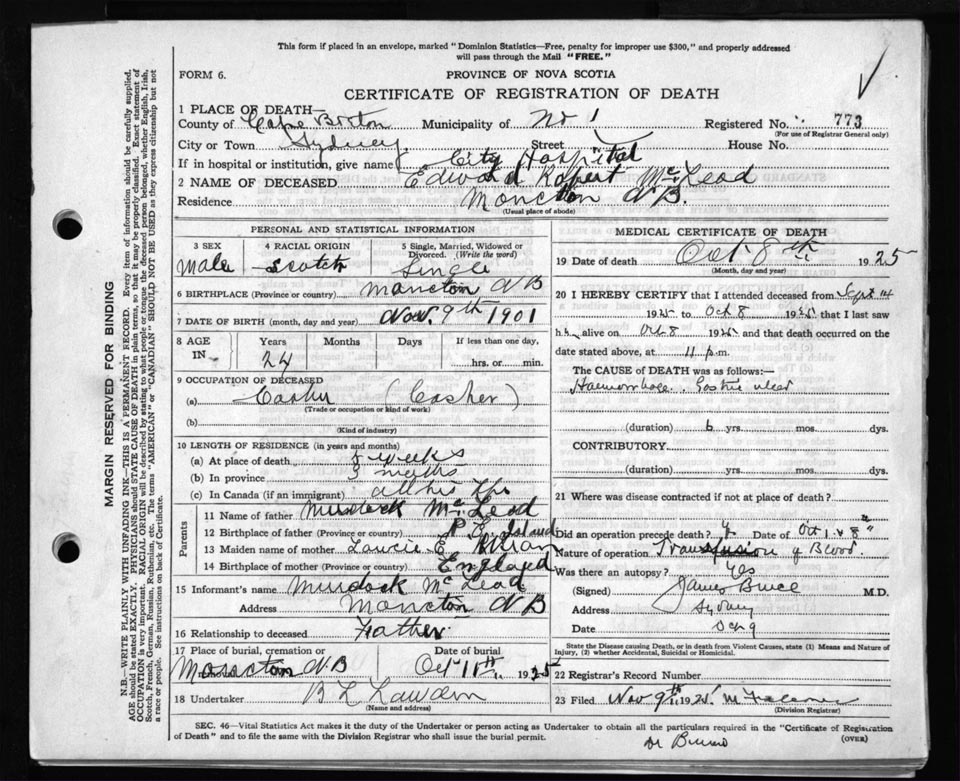 This form if placed in an envelope, marked "Dominion Statistics—Free, penalty for improper use $300," and properly addressed
will pass through the Mail "FREE."
FORM 6.
PROVINCE OF NOVA SCOTIA
CERTIFICATE OF REGISTRATION OF DEATH
1 PLACE OF DEATH—
County of Cape Breton Municipality of No 1 Registered No. 773
(For use of Registrar General only)
City or Town Sydney Street House No.
If in hospital or institution, give name City Hospital
2 NAME OF DECEASED Edward Robert McLead
Residence Moncton N B.
(Usual place of abode)
PERSONAL AND STATISTICAL INFORMATION
3 SEX 4 RACIAL ORIGIN 5 Single, Married, Widowed or
Divorced. (Write the word)
Male Scotch Single
6 BIRTHPLACE (Province or country) Moncton N B
7 DATE OF BIRTH (month, day and year) Nov. 9th 1901
8 AGE Years Months Days If less than one day,
IN 24 hrs. or min.
9 OCCUPATION OF DECEASED
(a) (Casher)
(Trade or occupation or kind of work)
(b)
(Kind of industry)
10 LENGTH OF RESIDENCE (in years and months)
(a) At place of death weeks
(b) In province 3 months
(c) In Canada (if an immigrant) all his life
Parents
11 Name of father Murdock McLead
12 Birthplace of father (Province or country) P E Island
13 Maiden name of mother E
14 Birthplace of mother (Province or country) England
15 Informant's name Murdock McLead
Address Moncton N B
16 Relationship to deceased Father
17 Place of burial, cremation or Date of burial
Moncton N.B Oct 11th 1925
18 Undertaker B L
(Name and address)
MEDICAL CERTIFICATE OF DEATH
19 Date of death Oct 8th 1925
(Month, day and year)
20 I HEREBY CERTIFY that I attended deceased from Sept 14
1925 to Oct 8 1925 that I last saw
h alive on Oct 8 1925 and that death occurred on the
date stated above, at 11 p.m.
The CAUSE of DEATH was as follows:—
Haemorrhage. Gastric ulcer
(duration) 6 yrs. mos. dys.
CONTRIBUTORY.
(duration) yrs. mos. dys.
21 Where was disease contracted if not at place of death?
Did an operation precede death? y Date of Oct 1 & 8
Nature of operation Transfusion of Blood
Was there an autopsy? Yes
(Signed) James Bruce M.D.
Address Sydney
Date Oct 9
State the Disease causing Death, or in death from Violent Causes, state (1) Means and Nature of
Injury, (2) whether Accidental, Suicidal or Homicidal.
22 Registrar's Record Number
23 Filed Nov 9th 1925
(Division Registrar)
SEC. 46—Vital Statistics Act makes it the duty of the Undertaker or person acting as Undertaker to obtain all the particulars required in the "Certificate of Registration
of Death" and to file the same with the Division Registrar who shall issue the burial permit.
(OVER)
Dr
MARGIN RESERVED FOR BINDING
N.B.—WRITE PLAINLY WITH UNFADING INK—THIS IS A PERMANENT RECORD. Every item of information should be carefully supplied.
AGE should be stated EXACTLY. PHYSICIANS should STATE CAUSE OF DEATH in plain terms, so that it may be properly classified. Exact statement of
OCCUPATION is very important. RACIAL ORIGIN will be described by stating to what people or tongue the deceased person belonged, whether English, Irish,
Scotch, French, German, Russian, Ruthenian, etc. The terms "AMERICAN" or "CANADIAN" SHOULD NOT BE USED as they express citizenship but not
a race or people. See instructions on back of Certificate.